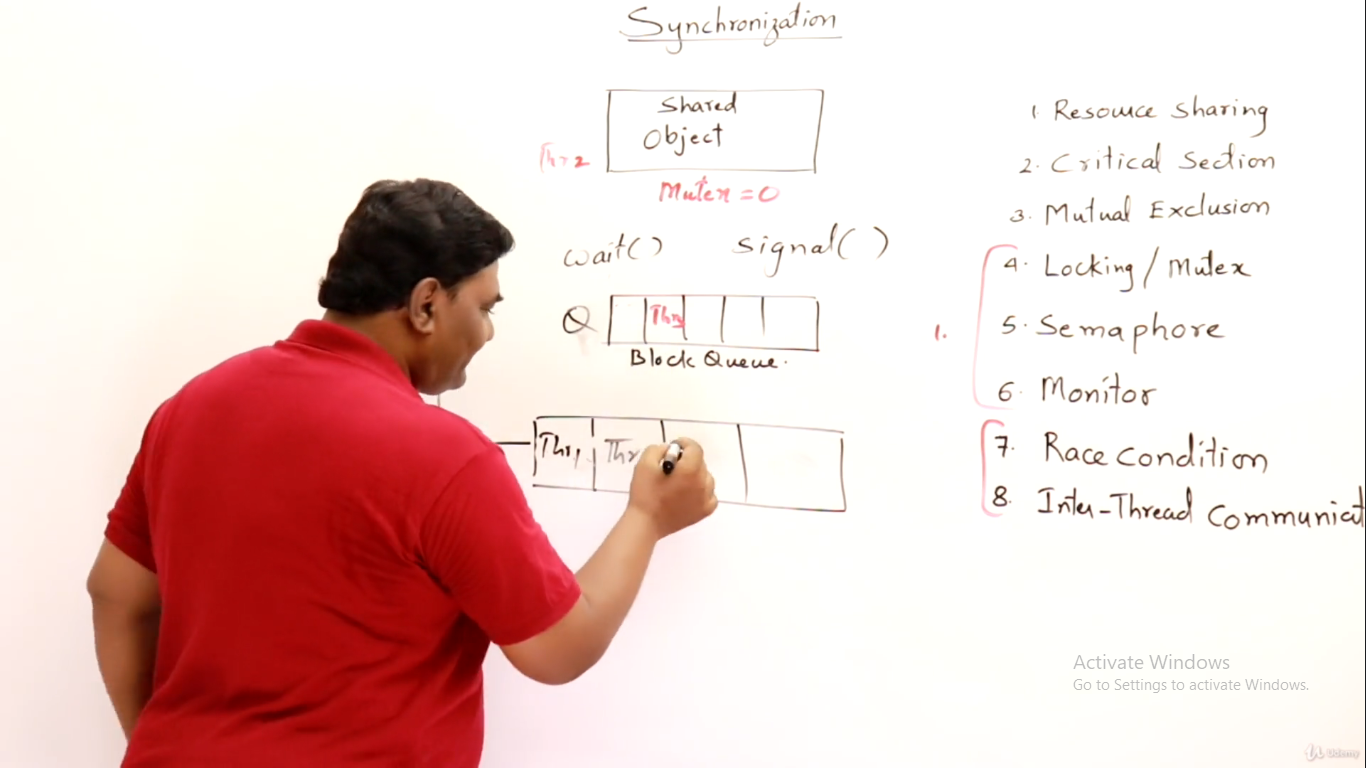 Synchronization
Shared
Object
Thr2
Mutex = 0
wait( )
Signal( )
Q
Thr3
Block Queue.
Thr1
Thr
1. Resource Sharing
2. Critical Section
3. Mutual Exclusion
4. Locking / Mutex
1.
5. Semaphore
6. Monitor
7. Race condition
8. Inter-Thread Communicat
Activate Windows
Go to Settings to activate Windows.
Udemy